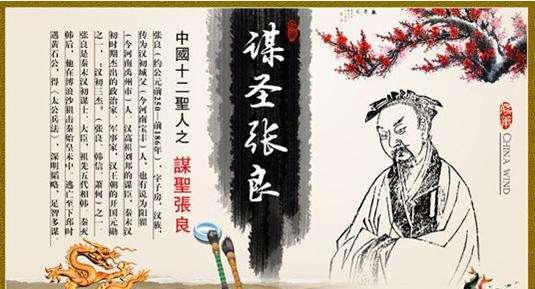 CHINA WIND
谋圣张良
中國十二聖人之 謀聖張良
张良（约公元前250—前186年），字子房，汉族，
传为汉初城父（今河南宝丰）人，也有说为阳翟
（今河南禹州市）人 汉高祖刘邦的谋臣，秦末汉
初时期杰出的政治家 军事家，汉王朝的开国元勋
之一，“汉初三杰”（张良、韩信、萧何）之一
张良是秦末汉初谋士、大臣，祖先五代相韩 秦灭
韩后，他在博浪沙狙击秦始皇未中，逃亡至下邳时
遇黄石公，得《太公兵法》，深明韬略，足智多谋。